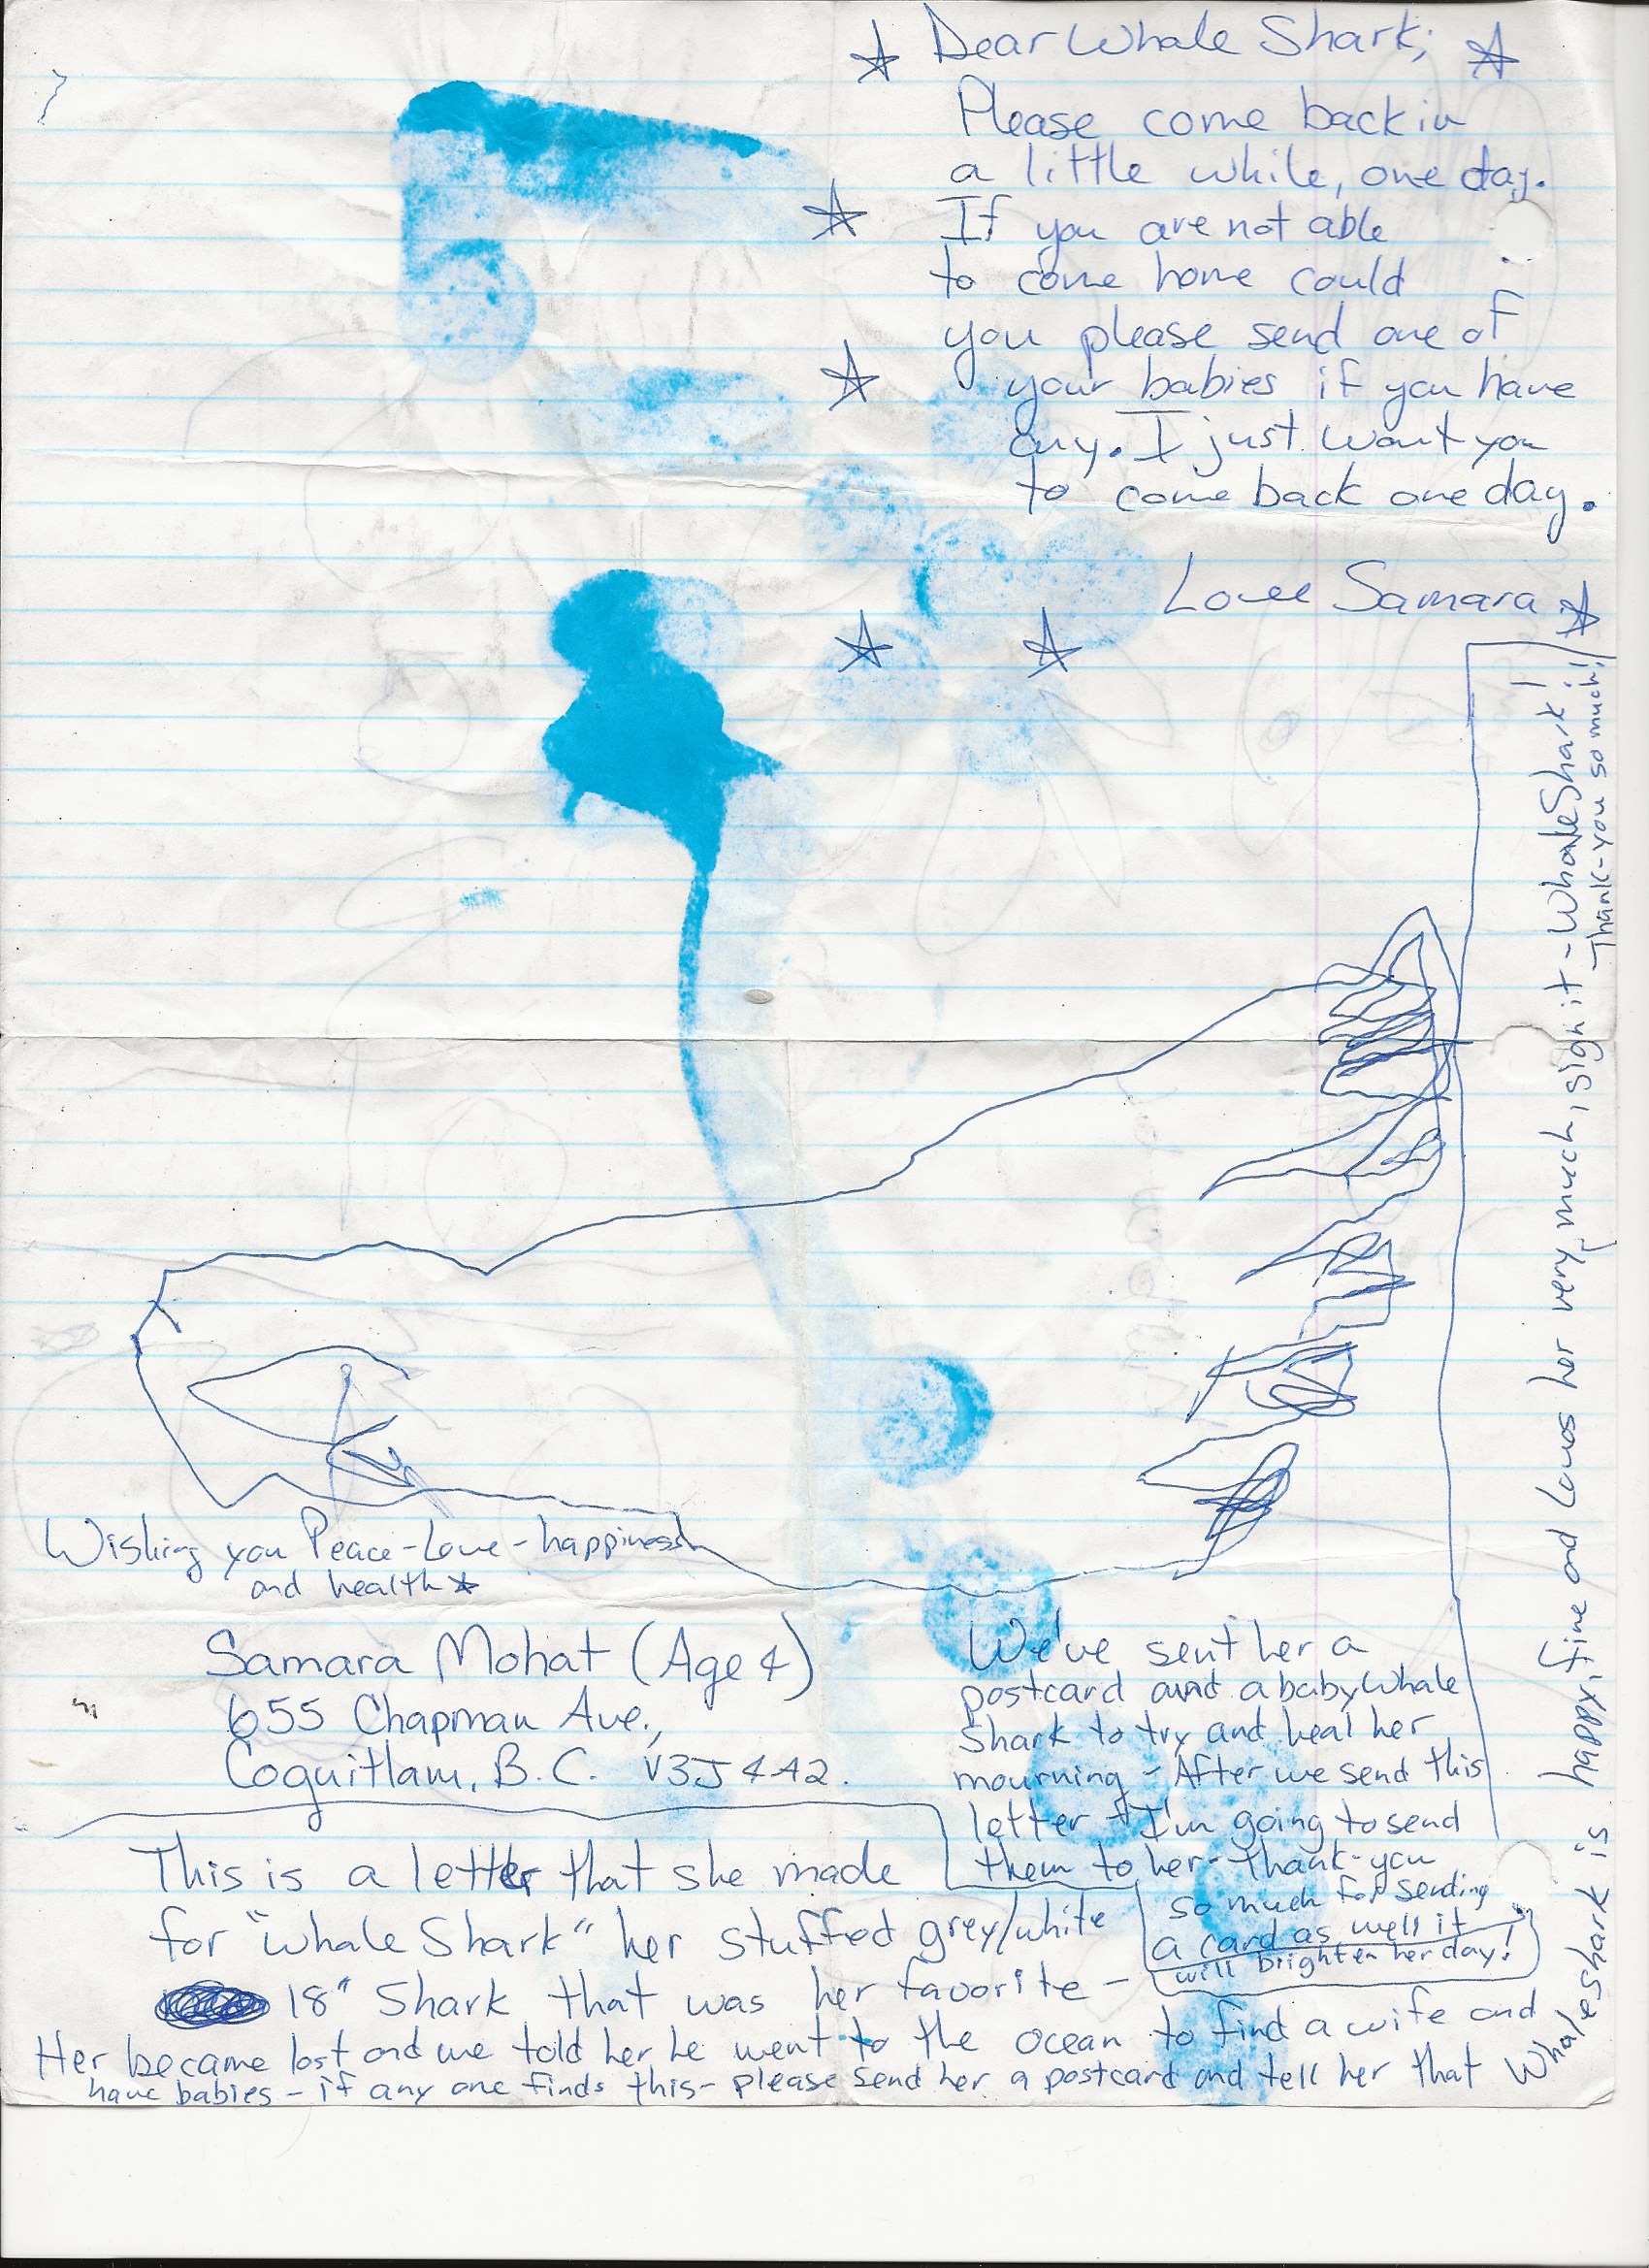 Dear Whale Shark;
Please come back in
a little while, one day.
If you are not able
to come home could
you please send one of
your babies if you have
any. I just want you
to come back one day.
Lovee Samara
Wishing you Peace-Love-happiness
and health
Samara Mohat (Age 4)
655 Chapman Ave.,
Coquitlam, B.C. V3J 4A2.
This is a letter that she made
for "Whale Shark" her stuffed grey/white
18" Shark that was her favorite -
Her became lost and we told her he went to the ocean to find a wife and
have babies - if any one finds this - please send her a postcard and tell her that Whaleshark is happy, fine and Loves her very much, sign it - Whale Shark!!
Thank-you so much!!
We've sent her a
postcard and a baby Whale
Shark to try and heal her
mourning - After we send this
letter I'm going to send
them to her - thank-you
so much for sending
a card as well it
will brighten her day!